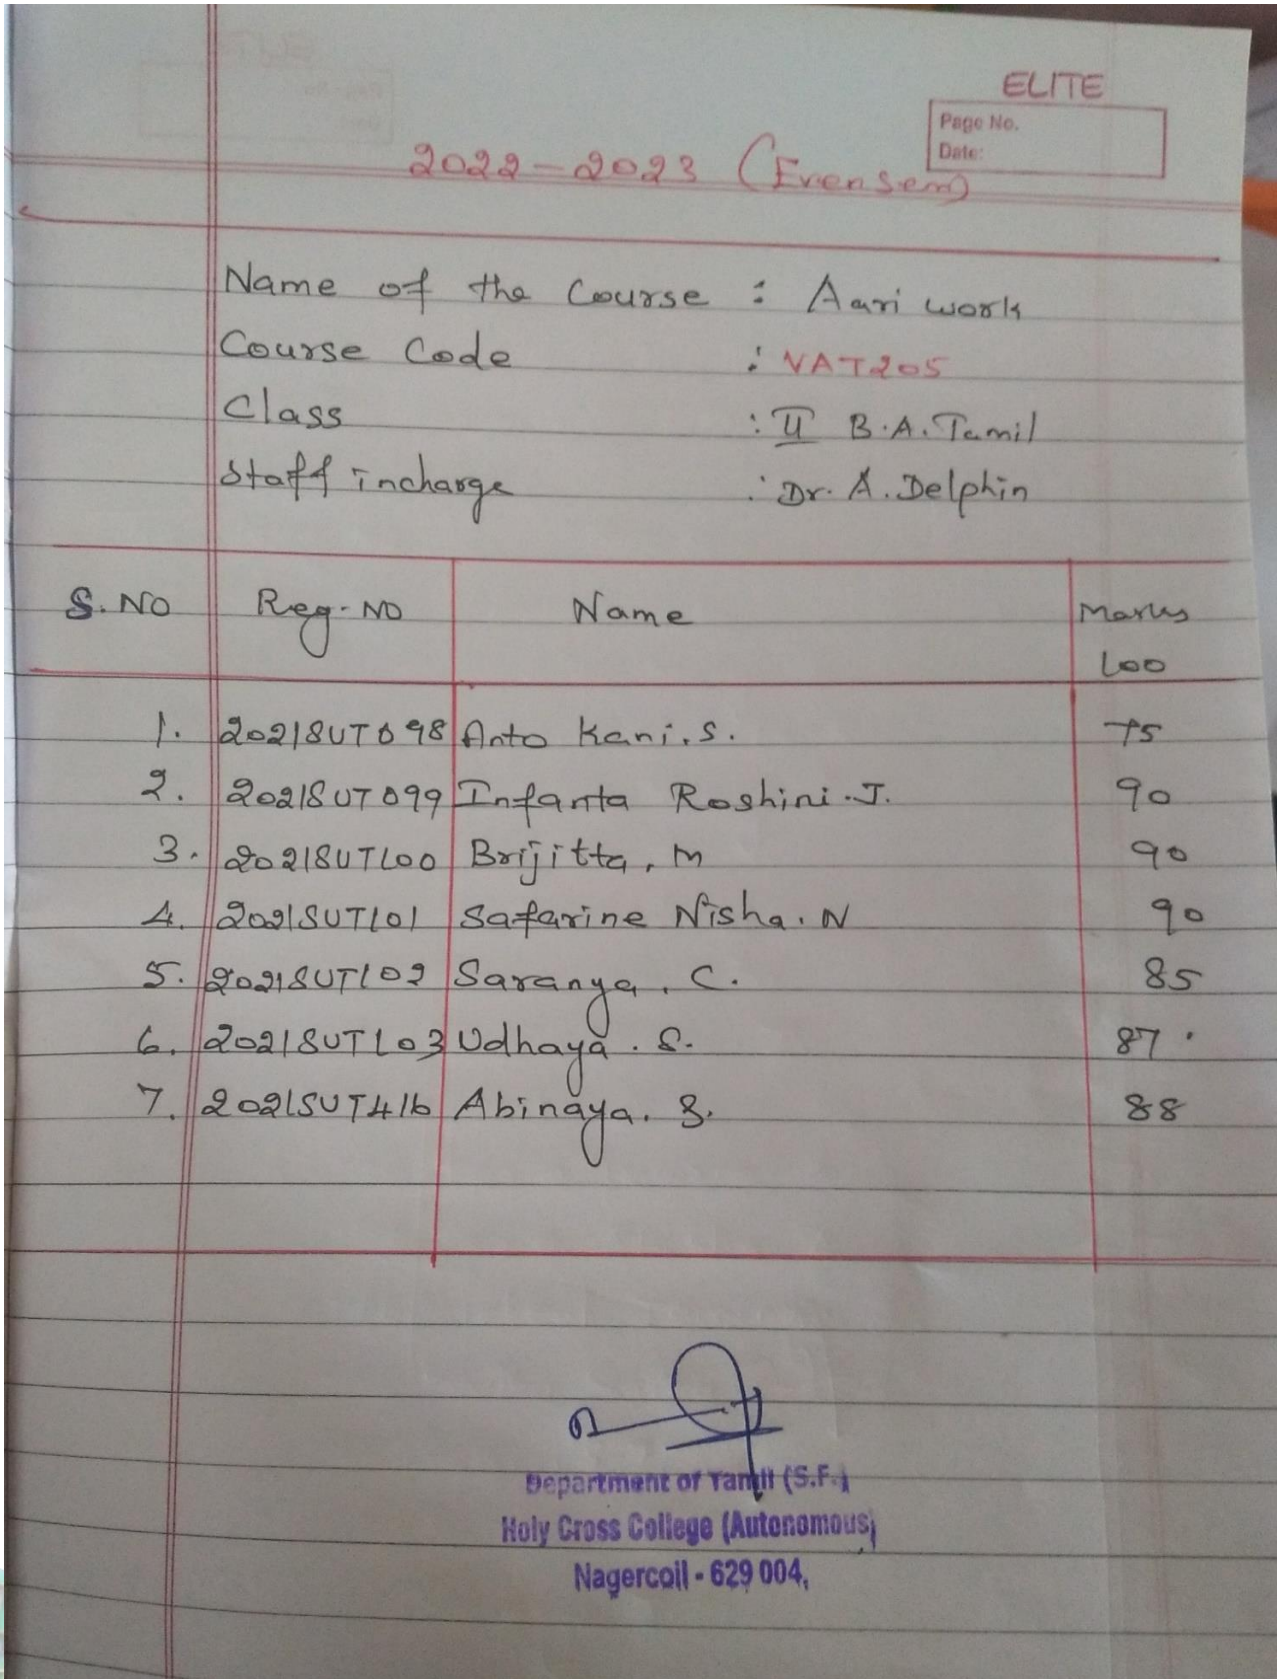 ELITE
Page No.
Date:
2022-2023 (Even sem)
Name of the Course : Aari work
Course Code : VAT205
Class : II B.A. Tamil
Staff incharge : Dr. A. Delphin
S. No Reg. No Name Marks
100
1. 2021SUT098 Anto Kani. S. 75
2. 2021SUT099 Infanta Roshini. J. 90
3. 2021SUT100 Brijitta. M 90
4. 2021SUT101 Safarine Nisha. N 90
5. 2021SUT102 Saranya. C. 85
6. 2021SUT103 Udhaya. S. 87.
7. 2021SUT416 Abinaya. S. 88
Department of Tamil (S.F.)
Holy Cross College (Autonomous)
Nagercoil - 629 004.